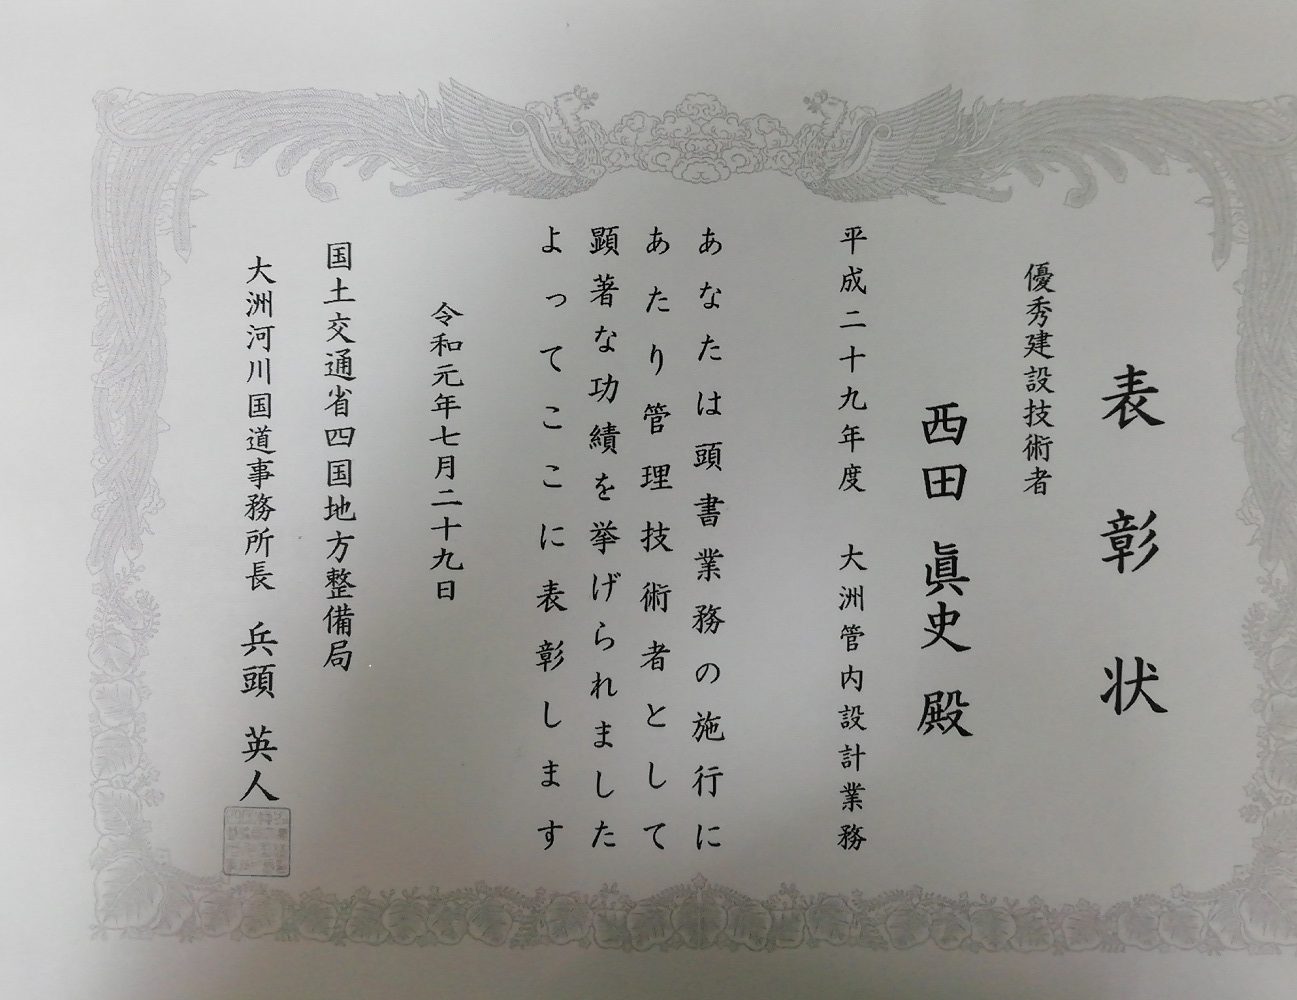 表彰状
優秀建設技術者
西田 眞史 殿
平成二十九年度 大洲管内設計業務
あなたは頭書業務の施行に
あたり管理技術者として
顕著な功績を挙げられました
よってここに表彰します
令和元年七月二十九日
国土交通省四国地方整備局
大洲河川国道事務所長 兵頭 英人